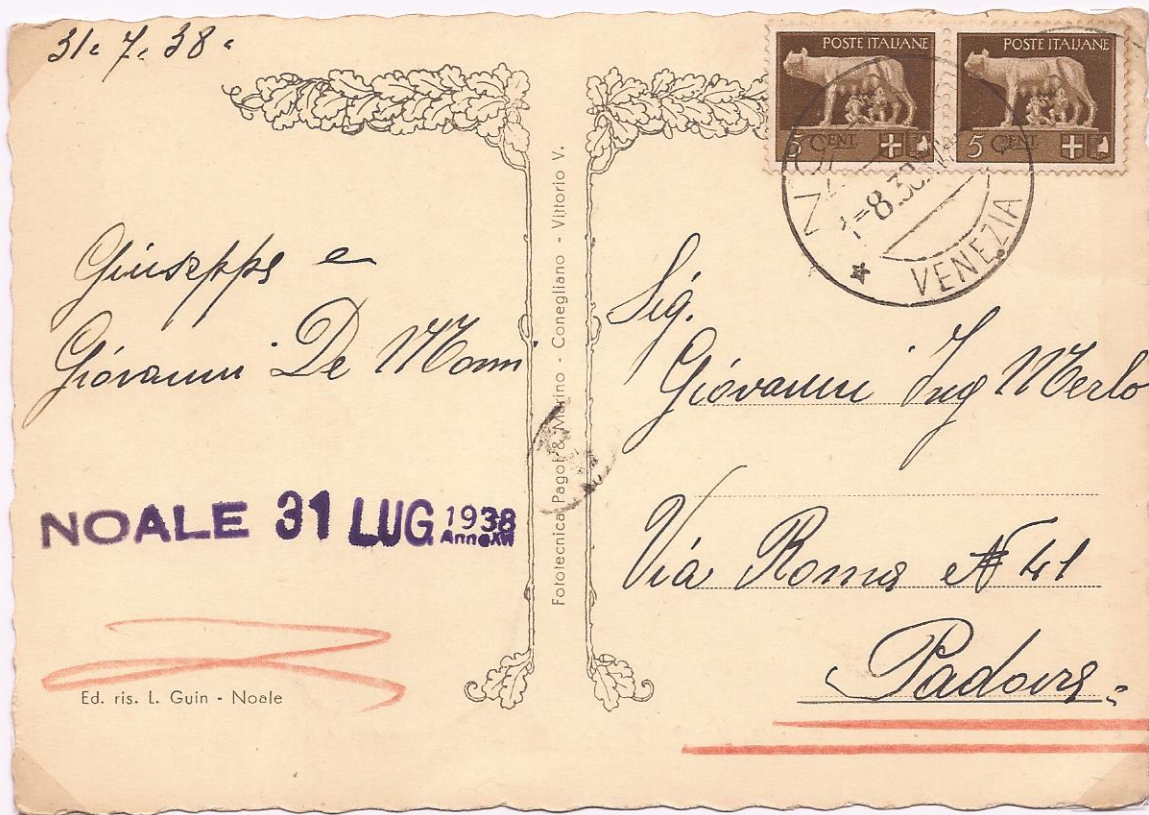 31. 7. 38.
POSTE ITALIANE
5 CENT.
POSTE ITALIANE
5 CENT.
-8.38
VENEZIA
Giuseppe e
Giovanni De Monni
NOALE 31 LUG. 1938
Anno XVI
Ed. ris. L. Guin - Noale
Fototecnica Pagoti & Marino - Conegliano - Vittorio V.
Sig.
Giovanni Ing Merlo
Via Roma N 41
Padova